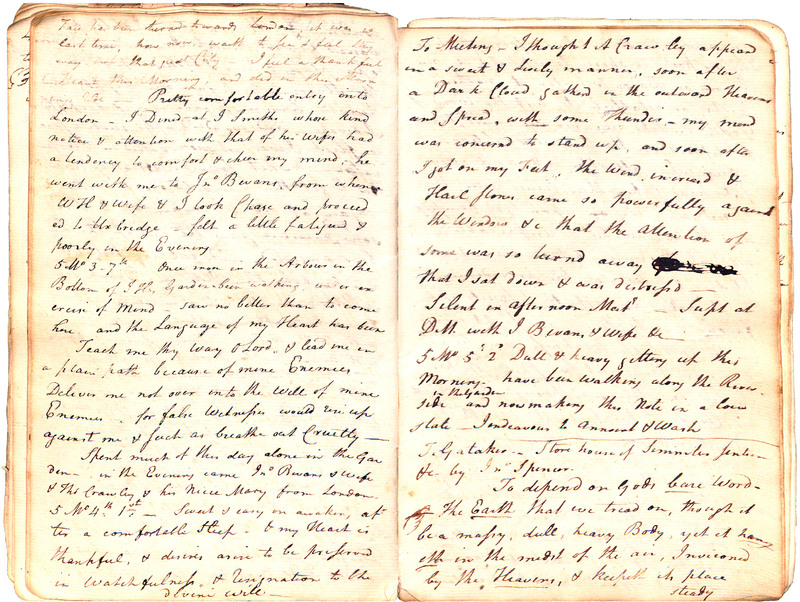 turned towards London, it was
last time, how now walk to
way I feel a thankful
Heart this Morning, and
Pretty comfortable entry into
London – I Dined at J Smiths, whose kind
notice & attention with that of his Wifes had
a tendency to comfort & chear my mind; he
went with me to Jno Bevans, from whence
WH & Wife & I took Chase and proceed
ed to Uxbridge – felt a little fatigued &
poorly in the Evening
5 Mo 3. 7th Once more in the Arbour in the
Bottom of Garden been walking under ex
ercise of Mind saw no better than to come
here and the Language of my Heart has been
Teach me thy way O Lord, & lead me in
a plain path because of mine Enemies
Deliver me not over unto the Will of mine
Enemies for false Witnesses would rise up
against me & such as breathe out Cruelty –
Spent much of this day alone in the Gar
den – in the Evening came Jno Bevans & Wife
& Tho Crawley & his Niece Mary from London.
5 Mo 4th 1st – Sweet & easy on awaking af
ter a comfortable Sleep. & my Heart is
thankful, & desires arise to be preserved
in Watchfulness, & Resignation to the
divine will –
To Meeting – I thought A Crawley appeard
in a sweet & lively manner, soon after
a Dark Cloud gathered in the outward Heavens
and Spread, with some Thunder – my mind
was concernd to stand up, and soon after
I got on my Feet, the Wind increasd &
Hail stones came so powerfully against
the Windows &c that the attention of
some was so turnd away
that I sat down & was distressd –
Silent in afternoon Meetg – Supt at
Ditto with J Bevans & Wife &c –
5 Mo 5. 2d Dull & heavy getting up this
Morning – have been walking along the River
in the Garden
side and now making this Note in a low
state – I endeavour to Annoint & Wash
T. Gataker – Store house of Simmiles
&c by Jno Spencer.
To depend on Gods bare Word –
The Earth that we tread on, though it
be a massy, dull, heavy Body, yet it hang
eth in the midst of the air, Invironed
by the Heavens, & keepeth its place
steady